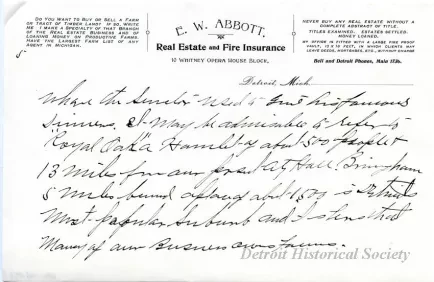 DO YOU WANT TO BUY OR SELL A FARM
OR TRACT OF TIMBER LAND? IF SO, WRITE
ME. I MAKE A SPECIALTY OF THAT BRANCH
OF THE REAL ESTATE BUSINESS AND OF
LOANING MONEY ON PRODUCTIVE FARMS.
HAVE THE LARGEST FARM LIST OF ANY
AGENT IN MICHIGAN.
E. W. ABBOTT,
Real Estate and Fire Insurance
10 WHITNEY OPERA HOUSE BLOCK,
NEVER BUY ANY REAL ESTATE WITHOUT A
COMPLETE ABSTRACT OF TITLE.
TITLES EXAMINED. ESTATES SETTLED.
MONEY LOANED.
MY OFFICE IS FITTED WITH A LARGE FIRE PROOF
VAULT, 10 X 15 FEET, IN WHICH CLIENTS MAY
LEAVE DEEDS, MORTGAGES, ETC., WITHOUT CHARGE
Bell and Detroit Phones, Main 1736.
5
Detroit, Mich.
where the Senator used to give his famous
dinners. It may be admissable to refer to
"Royal Oak" a Hamlet of about 500 people
13 miles from our City Hall. Bringham
5 miles beyond of about 1,500 is Detroits
Most popular Suburb and I
Many of our Business
Detroit Historical Society